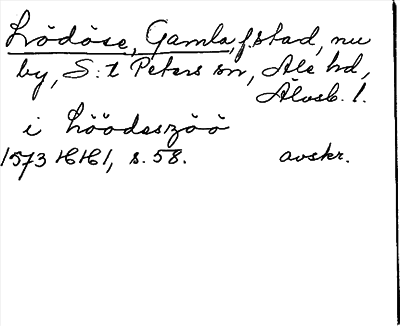 Lödöse, Gamla, f. stad, nu
by, S:t Peters sn, Ale hd,
Älvsb. l.
i Löödeszöö
1573 HH1, s. 58. avskr.